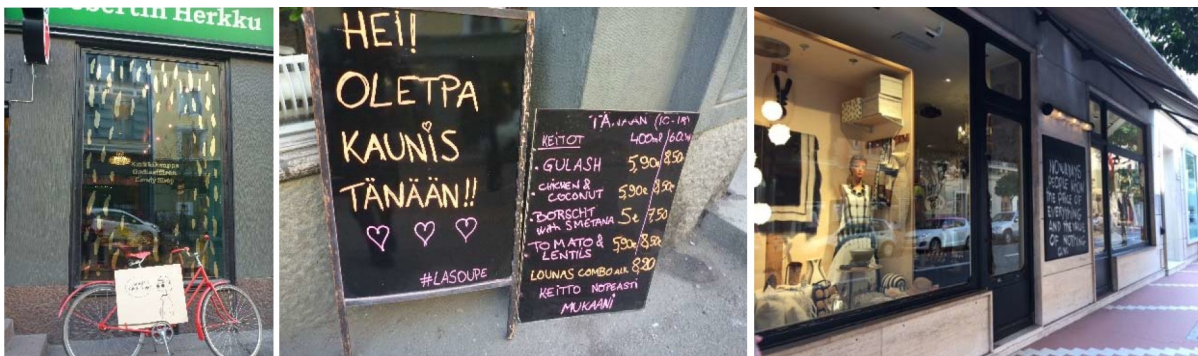 obertin Herkku
Karkkikauppa
Godisaffären
Candy Shop
HEI!
OLETPA
KAUNIS
TÄNÄÄN!!
#LASOUPE
TÄNÄÄN (10-18)
KEITOT 400ml/600ml
GULASH 5,90€/8,50€
CHICKEN & COCONUT 5,90€/8,50€
BORSCHT with SMETANA 5€/7,50
TOMATO & LENTILS 5,90€/8,50€
LOUNAS COMBO ALK 8,20
KEITTO NOPEASTI
MUKAANI
NOWADAYS
PEOPLE KNOW
THE PRICE OF
EVERYTHING
AND THE VALUE
OF NOTHING